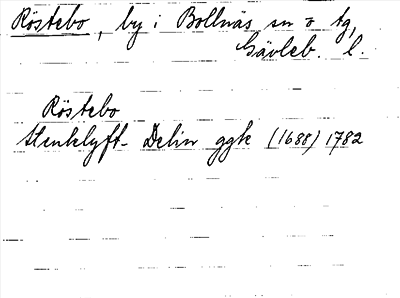 Röstebo, by i Bollnäs sn o tg,
Gävleb. l.
Röstebo
Stenklyft- Delin ggk (1688) 1782